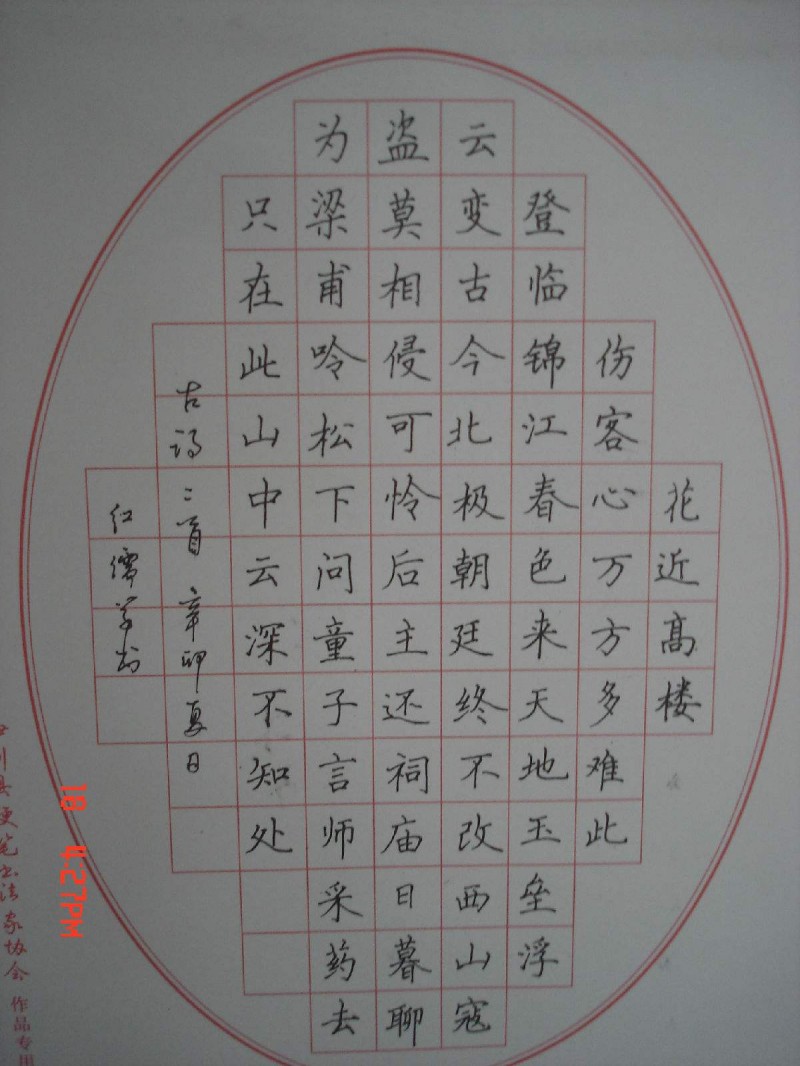 花近高楼
伤客心万方多难此
登临锦江春色来天地玉垒浮
云变古今北极朝廷终不改西山寇
盗莫相侵可怜后主还祠庙日暮聊
为梁甫呤松下问童子言师采药去
只在此山中云深不知处
古诗二首 辛卯夏日
红
县硬笔书法家协会 作品专用
18 4:27PM